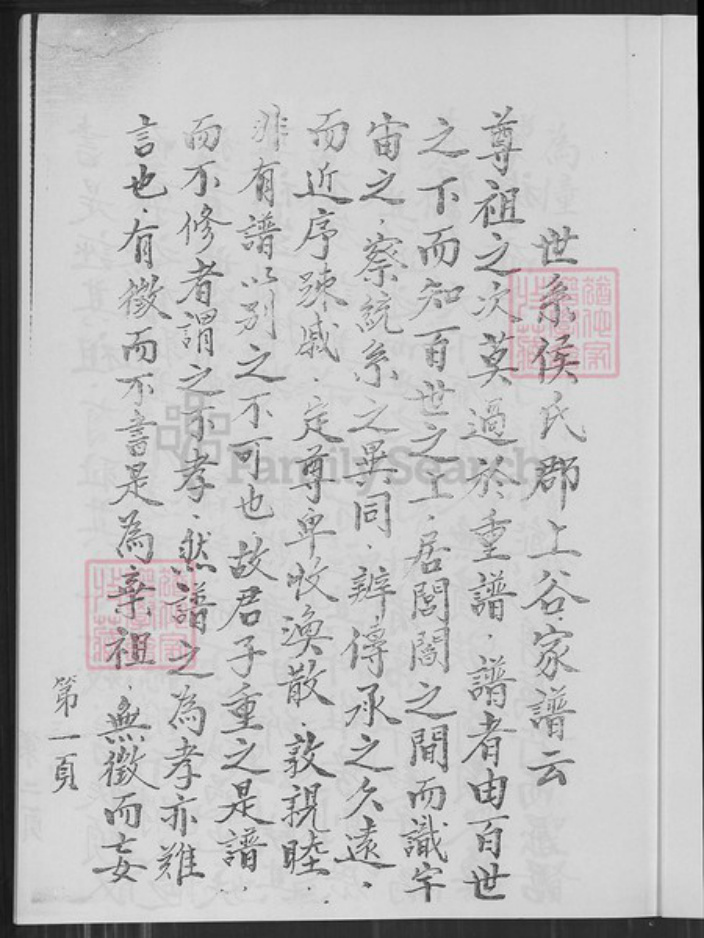 世系侯氏郡上谷家譜云
尊祖之次莫過於重譜．譜者由百世
之下而知百世之上．居閭閻之間而識宇
宙之．察統系之異同．辨傳承之久遠．
而近序踈戚．定尊卑收渙散．敦親睦．
非有譜以别之不可也故君子重之是譜．
而不修者謂之不孝．然譜之為孝亦难
言也．有徵而不書是為棄祖．無徵而妄
第一頁
FamilySearch